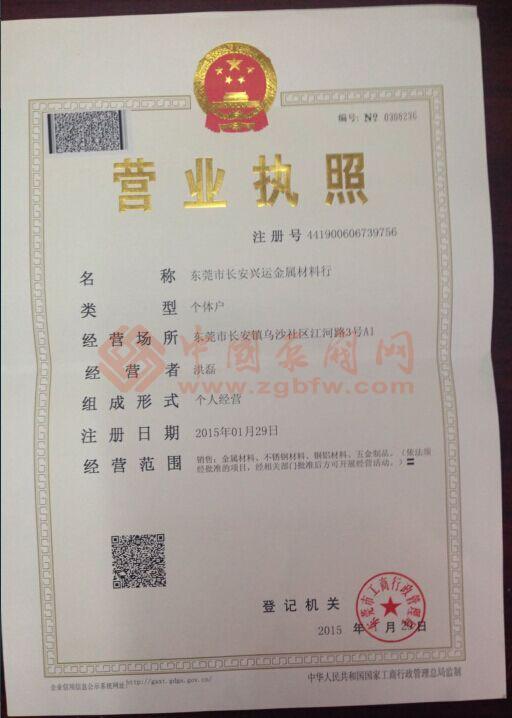 编号: № 0308236
营业执照
注册号 441900606739756
名称 东莞市长安兴运金属材料行
类型 个体户
经营场所 东莞市长安镇乌沙社区江河路3号A1
中国泵阀网
www.zgbfw.com
经营者 洪磊
组成形式 个人经营
注册日期 2015年01月29日
经营范围 销售：金属材料、不锈钢材料、铜铝材料、五金制品。（依法须
经批准的项目，经相关部门批准后方可开展经营活动。）
登记机关
东莞市工商行政管理局
2015 年 月 29日
企业信用信息公示系统网址: http://gsxt.gdgs.gov.cn/
中华人民共和国国家工商行政管理总局监制